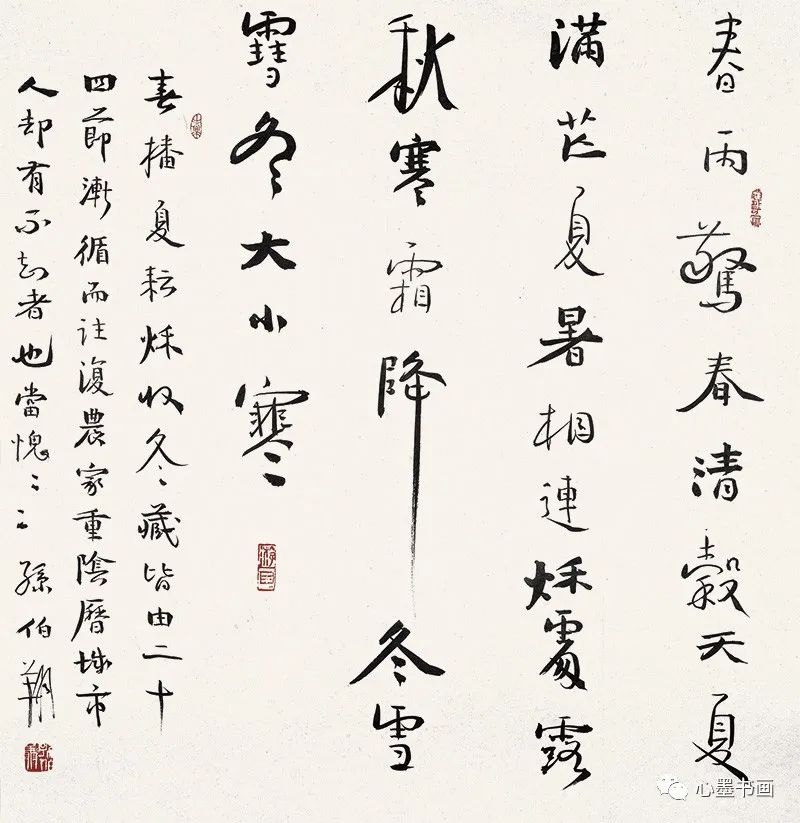 春雨驚春清穀天夏
滿芒夏暑相連秋處露
秋寒霜降冬雪
雪冬大小寒
春播夏耘秋收冬藏皆由二十
四節漸循而往復農家重陰曆城市
人却有不知者也當愧〻〻孫伯翔
心墨书画